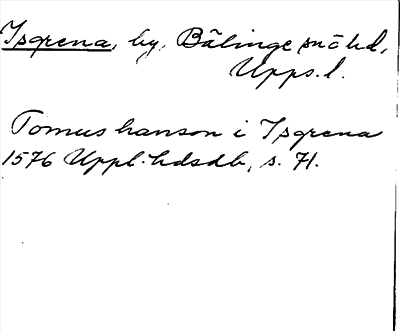 Isgrena, by, Bälinge sn o hd,
Upps. l.
Tomus hanson i Isgrena
1576 Uppl. hdsdb, s. 71.